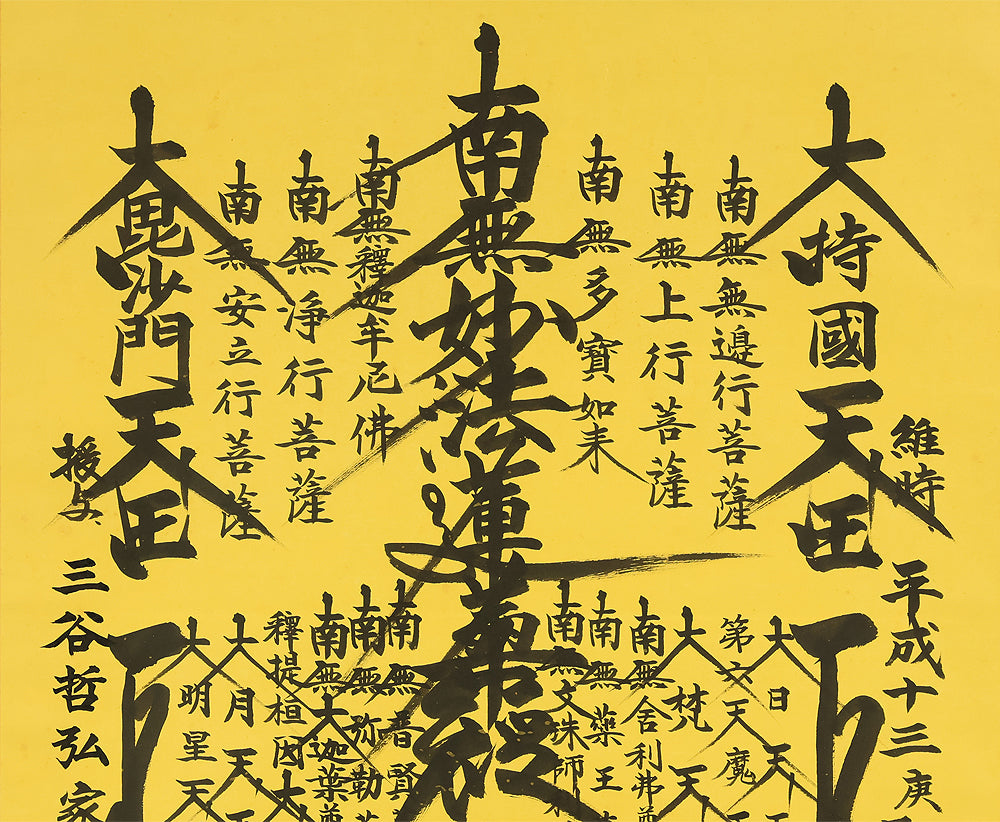 維時 平成十三庚
大持國天王
南無無邊行菩薩
南無上行菩薩
南無多寶如来
南無妙法蓮華經
南無釋迦牟尼佛
南無浄行菩薩
南無安立行菩薩
大毘沙門天王
授与 三谷哲弘家
大日天
第六天魔
大梵天
南無舎利弗尊
南無藥王
南無文珠師利
南無普賢
南無弥勒
南無大迦葉尊
釋提桓因大
大月天
大明星天